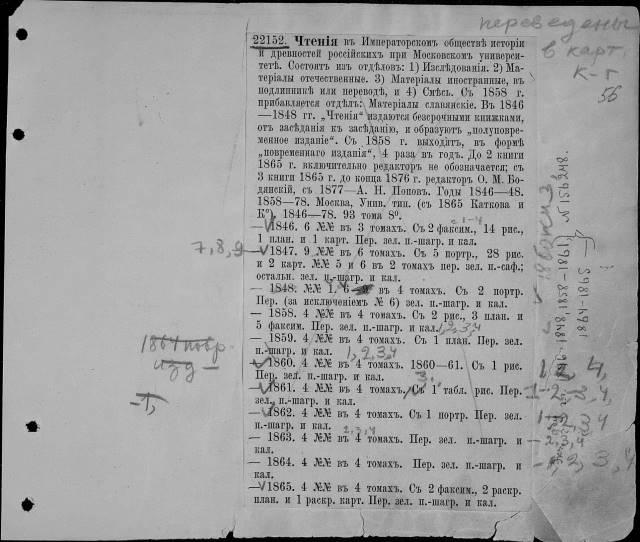 переведены
в карт.
К-г
56
22152. Чтенія въ Императорскомъ обществѣ исторіи
и древностей россійскихъ при Московскомъ универси-
тетѣ. Состоятъ изъ отдѣловъ: 1) Изслѣдованія. 2) Ма-
теріалы отечественные. 3) Матеріалы иностранные, въ
подлинникѣ или переводѣ, и 4) Смѣсь. Съ 1858 г.
прибавляется отдѣлъ: Матеріалы славянскіе. Въ 1846
—1848 гг. „Чтенія“ издаются безсрочными книжками,
отъ засѣданія къ засѣданію, и образуютъ „полуповре-
менное изданіе“. Съ 1858 г. выходитъ, въ формѣ
„повременнаго изданія“, 4 раза въ годъ. До 2 книги
1865 г. включительно редакторъ не обозначается; съ
3 книги 1865 г. до конца 1876 г. редакторъ О. М. Бо-
дянскій, съ 1877—А. Н. Поповъ. Годы 1846—48.
1858—78. Москва, Унив. тип. (съ 1865 Каткова и
К°). 1846—78. 93 тома 8°.
—1846. 6 №№ въ 3 томахъ. Съ 2 факсим., 14 рис.,
1 план. и 1 карт. Пер. зел. п.-шагр. и кал.
7, 8, 9
—1847. 9 №№ въ 6 томахъ. Съ 5 портр., 28 рис.
и 2 карт. №№ 5 и 6 въ 2 томахъ пер. зел. п.-саф.;
остальн. зел. п.-шагр. и кал.
— 1848. №№ 1, 6 въ 4 томахъ. Съ 2 портр.
Пер. (за исключеніемъ № 6) зел. п.-шагр. и кал.
— 1858. 4 №№ въ 4 томахъ. Съ 2 рис., 3 план. и
5 факсим. Пер. зел. п.-шагр. и кал. 1, 2, 3, 4
— 1859. 4 №№ въ 4 томахъ. Съ 1 план. Пер. зел.
п.-шагр. и кал. 1, 2, 3, 4
—1860. 4 №№ въ 4 томахъ. 1860—61. Съ 1 рис.
Пер. зел. п.-шагр. и кал. 3.
—1861. 4 №№ въ 4 томахъ. Съ 1 табл. рис. Пер.
зел. п.-шагр. и кал.
—1862. 4 №№ въ 4 томахъ. Съ 1 портр. Пер. зел.
п.-шагр. и кал. 2, 3, 4
— 1863. 4 №№ въ 4 томахъ. Пер. зел. п.-шагр. и
кал.
— 1864. 4 №№ въ 4 томахъ. Пер. зел. п.-шагр. и
кал.
—1865. 4 №№ въ 4 томахъ. Съ 2 факсим., 2 раскр.
план. и 1 раскр. карт. Пер. зел. п.-шагр. и кал.